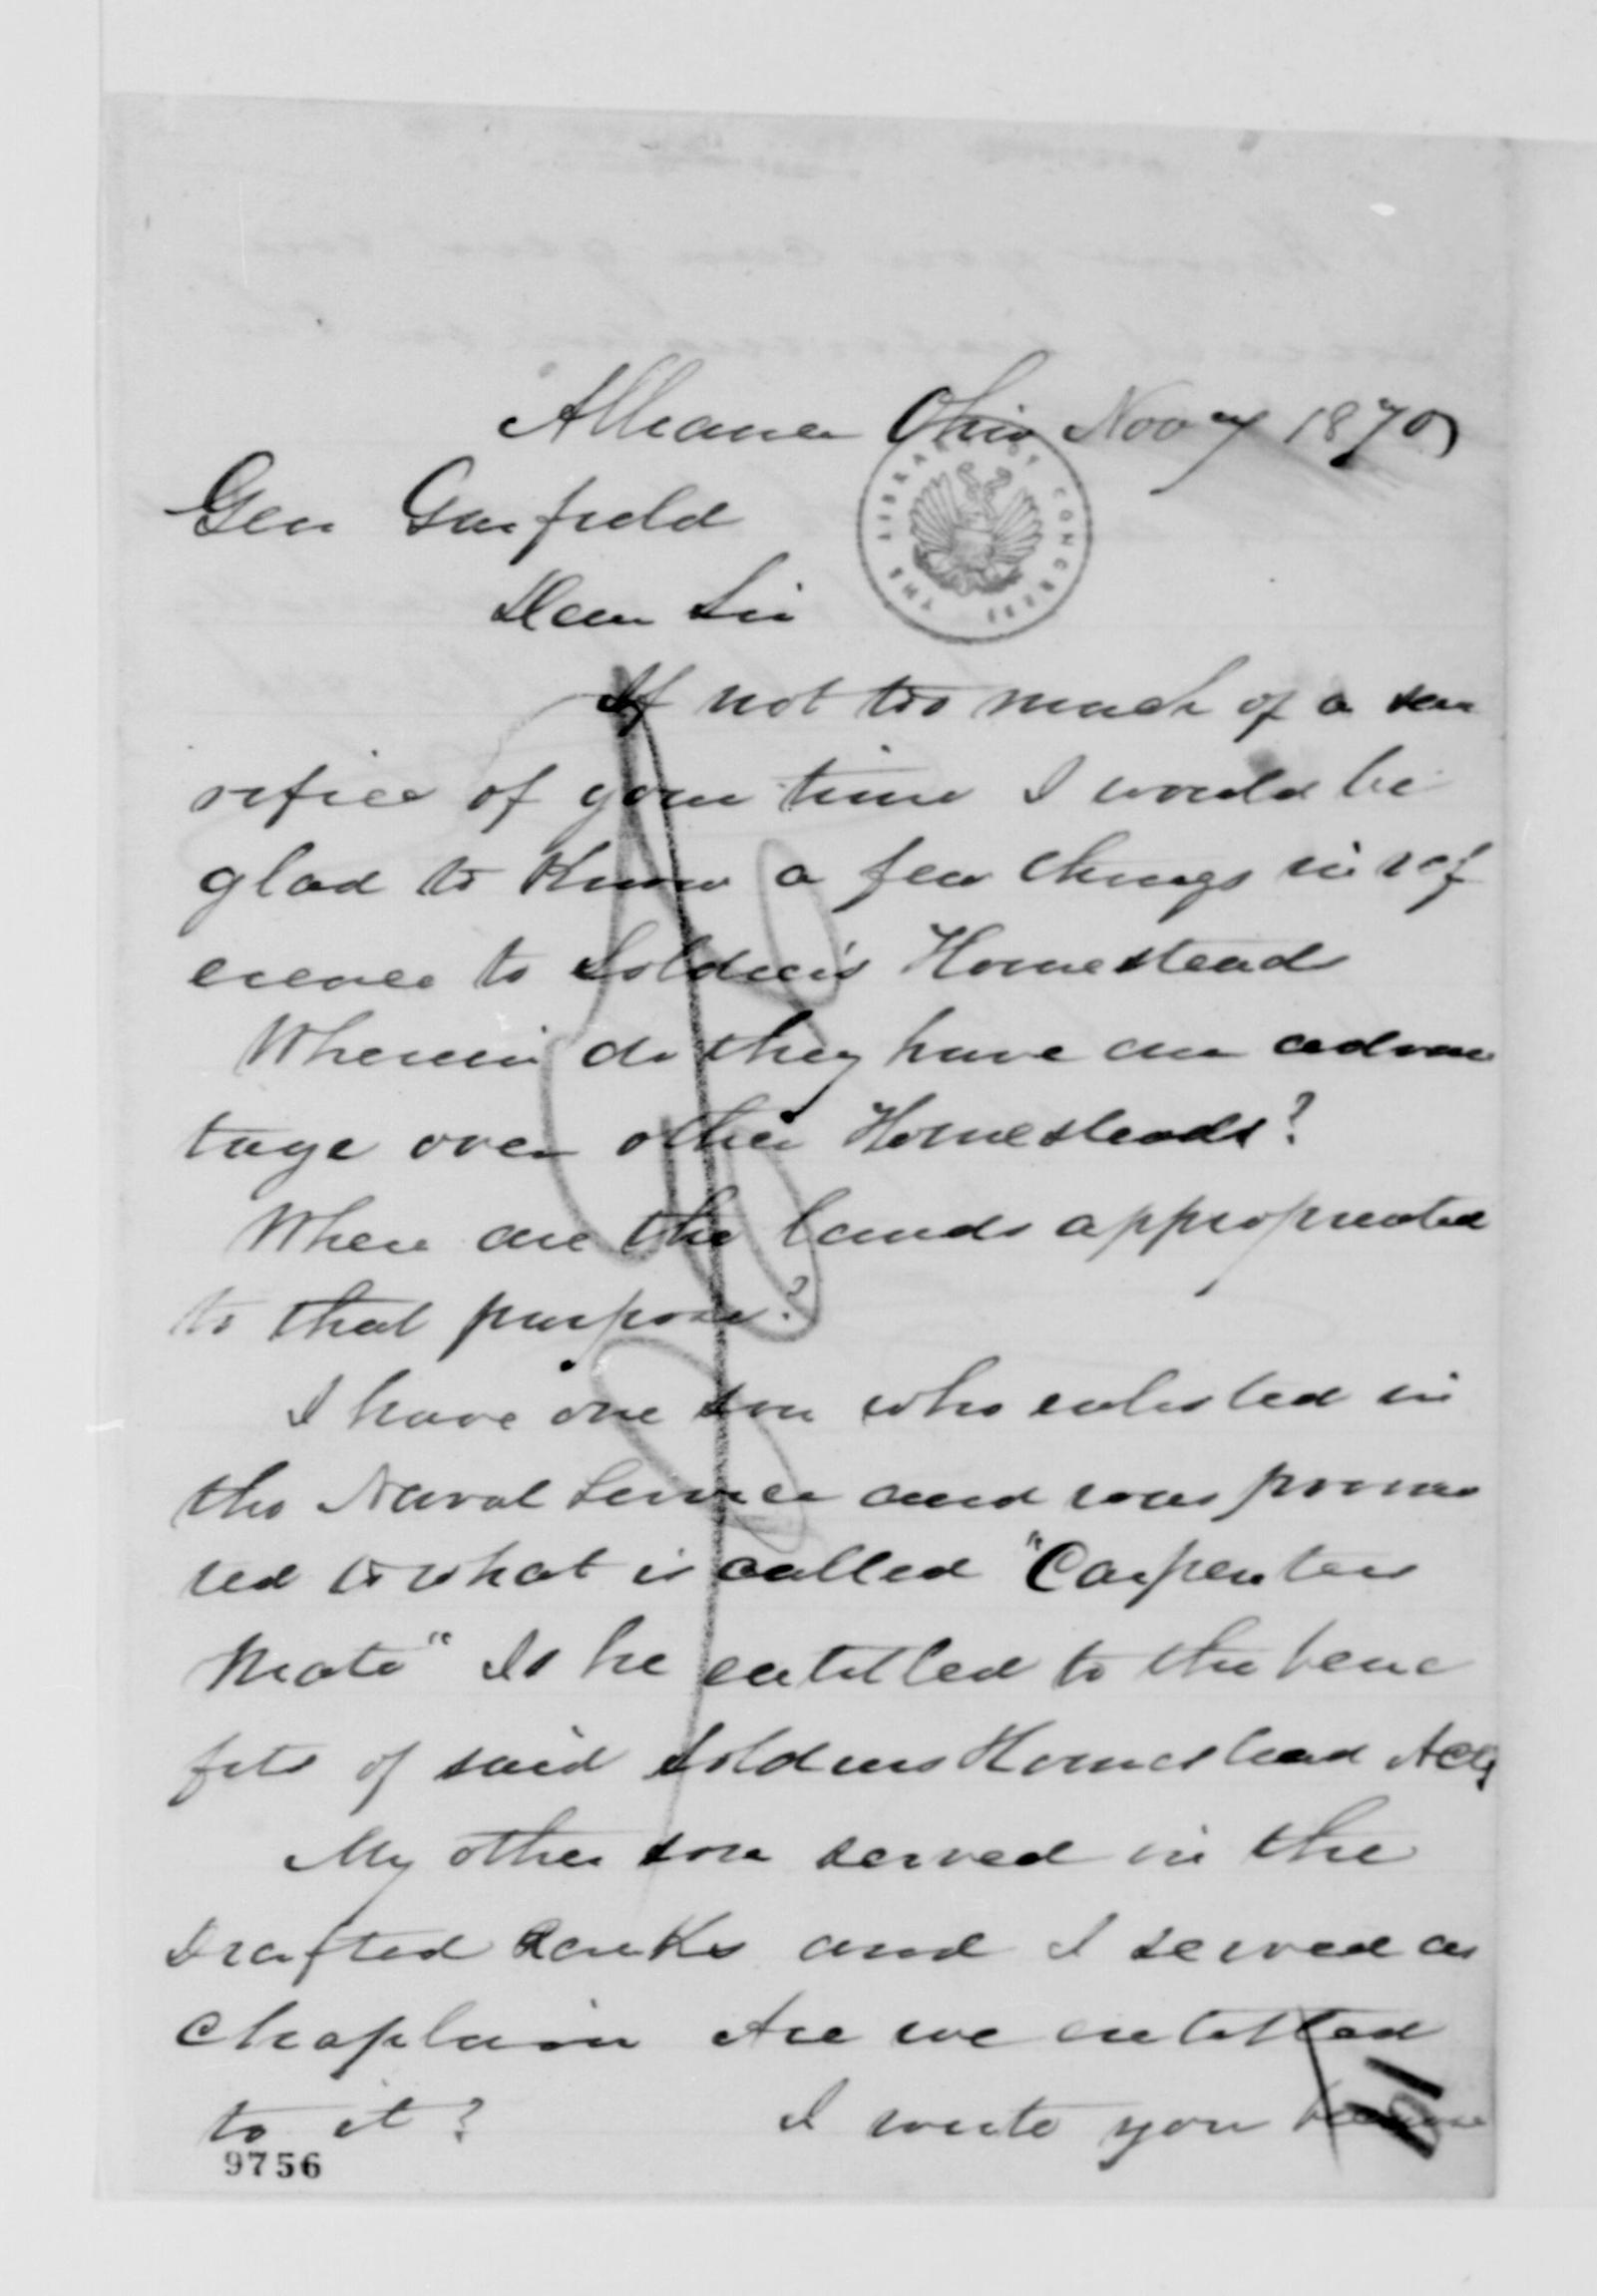 Alliance Ohio Nov 7 1870
Gen Garfield
THE LIBRARY OF CONGRESS
Dear Sir
If not too much of a sac
rifice of your time I would be
glad to know a few things in ref
erence to Soldier's Homesteads
Wherein do they have an advan
tage over other Homesteads?
Where are the lands appropriated
to that purpose?
I have one son who enlisted in
the Naval Service and was promo
ted to what is called "Carpenters
Mate" Is he entitled to the bene
fits of said Soldiers Homestead Act?
My other son served in the
Drafted Ranks and I served as
Chaplain Are we entitled
to it? I write you because
9756